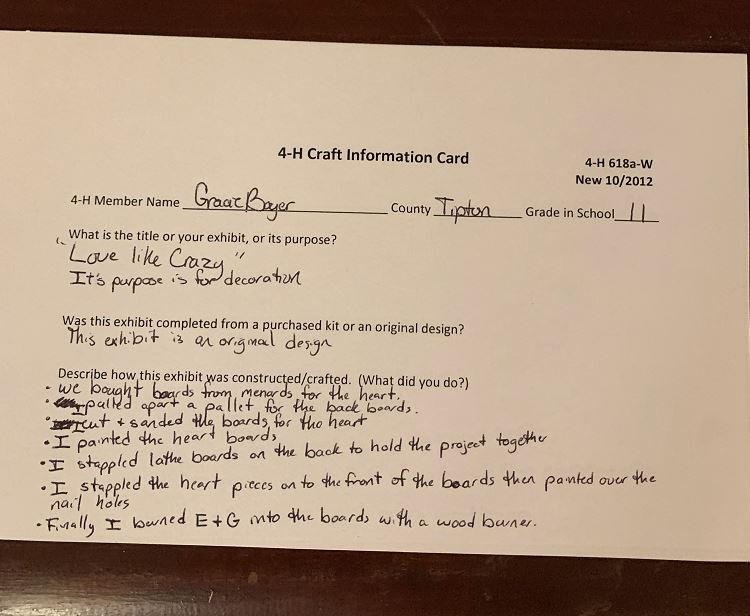 4-H Craft Information Card
4-H 618a-W
New 10/2012
4-H Member Name Bayer County Tipton Grade in School 11
What is the title or your exhibit, or its purpose?
"Love like Crazy"
It's purpose is for decoration
Was this exhibit completed from a purchased kit or an original design?
This exhibit is an original design
Describe how this exhibit was constructed/crafted. (What did you do?)
• we bought boards from menards for the heart.
• I pulled apart a pallet for the back boards.
• I cut + sanded the boards for the heart
• I painted the heart boards
• I stappled lathe boards on the back to hold the project together
• I stappled the heart pieces on to the front of the boards then painted over the
nail holes
• Finally I burned E+G into the boards with a wood burner.